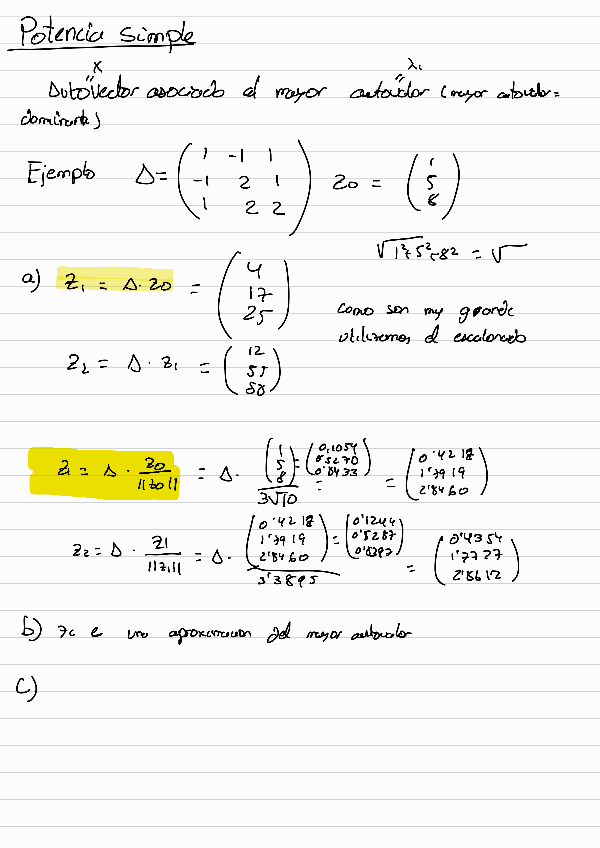 Potencia simple
x λ₁
Autovector asociado al mayor autovalor (mayor autovalor =
dominante)
Ejemplo A = ( 1 -1 1 ; -1 2 1 ; 1 2 2 ) z0 = ( 1 ; 5 ; 8 )
√1²+5²+8² = √
a) z₁ = A · z0 = ( 4 ; 17 ; 25 )
como son muy grande
utilizamos el escalonado
z₂ = A · z₁ = ( 12 ; 55 ; 88 )
z₁ = A · z0 / ||z0|| = A · ( 1 ; 5 ; 8 ) / 3√10 = ( 0'1054 ; 0'5270 ; 0'8433 ) = ( 0'4218 ; 1'7919 ; 2'8460 )
z₂ = A · z1 / ||z1|| = A · ( 0'4218 ; 1'7919 ; 2'8460 ) / 3'3895 = ( 0'1244 ; 0'5287 ; 0'8397 ) = ( 0'4354 ; 1'7727 ; 2'8612 )
b) una aproximacion del mayor autovalor
c)